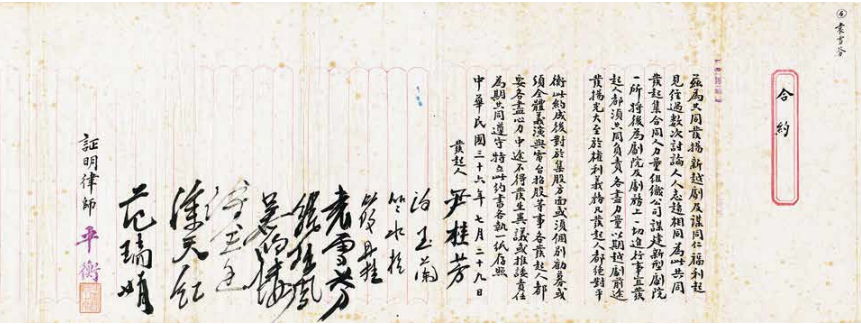 ⑥ 袁雪芬
合約
茲為共同發揚新越劇及謀同仁福利起
見經過數次討論人人志趣相同為此共同
發起集合同人力量組織公司謀建新型劇院
一所將後為劇院及劇務上一切進行事宜發
起人都須共同負責各盡力量以期越劇前途
發揚光大至於權利義務凡發起人都絕對平
衡此約成後對於集股方面或須個別勸募或
須全體義演與電台招股等事各發起人都
要各盡心力中途不得發生異議或推諉責任
為期共同遵守特立此約書各執一紙存照
中華民國三十六年七月二十九日
發起人 尹桂芳
徐玉蘭
竺水招
筱丹桂
袁雪芬
張桂鳳
吳筱樓
傅全香
徐天紅
范瑞娟
証明律師 平衡